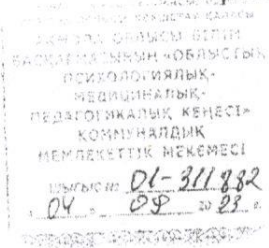 БАСҚАРМАСЫНЫҢ «ОБЛЫСТЫҚ
ПСИХОЛОГИЯЛЫҚ-
МЕДИЦИНАЛЫҚ-
ПЕДАГОГИКАЛЫҚ КЕҢЕСІ»
КОММУНАЛДЫҚ
МЕМЛЕКЕТТІК МЕКЕМЕСІ
ШЫҒЫС № 01-311882
04 20 23 г.